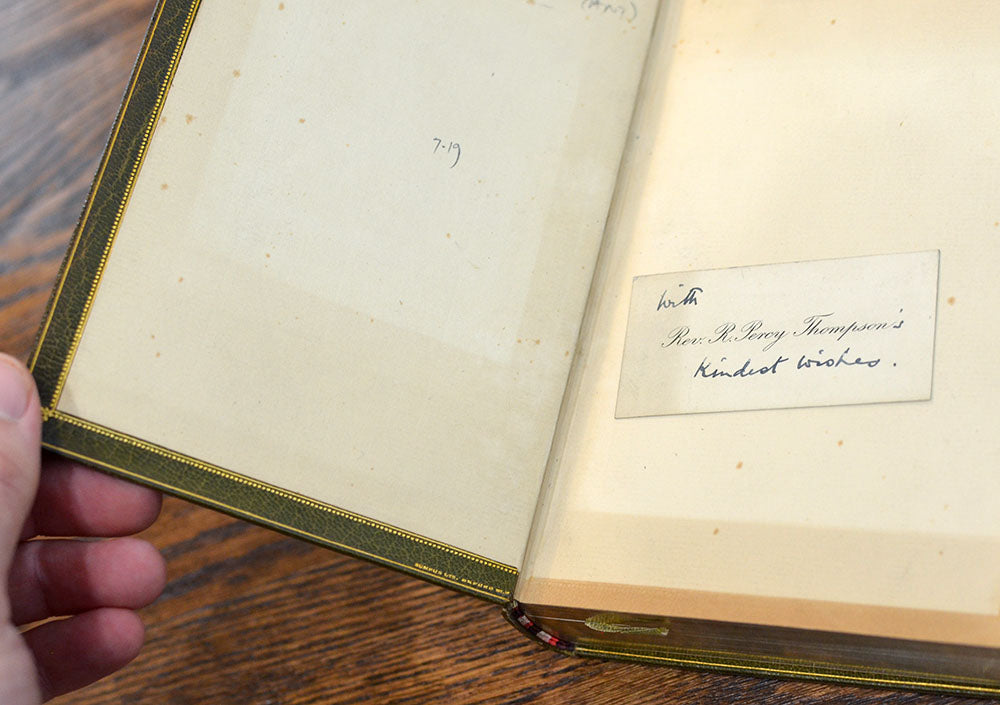 (ANT)
7.19
With
Rev. R. Percy Thompson's
Kindest wishes.
BUMPUS LTD. OXFORD ST.